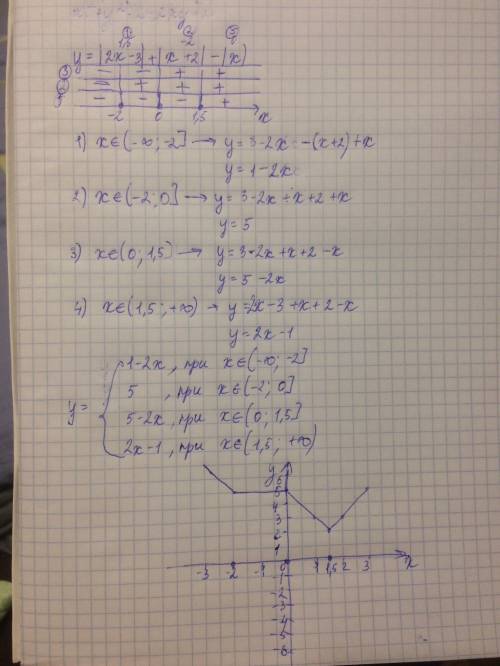 ① ② ③
1,5 -2 0
y = |2x-3| + |x+2| - |x|
③ - - + +
② - + + +
① - - - +
-2 0 1,5 x
1) x∈(-∞; -2] → y = 3-2x -(x+2)+x
y = 1-2x
2) x∈(-2; 0] → y = 3-2x + x+2 +x
y = 5
3) x∈(0; 1,5] → y = 3-2x+x+2-x
y = 5-2x
4) x∈(1,5; +∞) → y = 2x-3+x+2-x
y = 2x-1
y = { 1-2x, при x∈(-∞; -2]
5, при x∈(-2; 0]
5-2x, при x∈(0; 1,5]
2x-1, при x∈(1,5; +∞)
y
6
5
4
3
2
1
-3 -2 -1 0 1 1,5 2 3 x
-1
-2
-3
-4
-5
-6